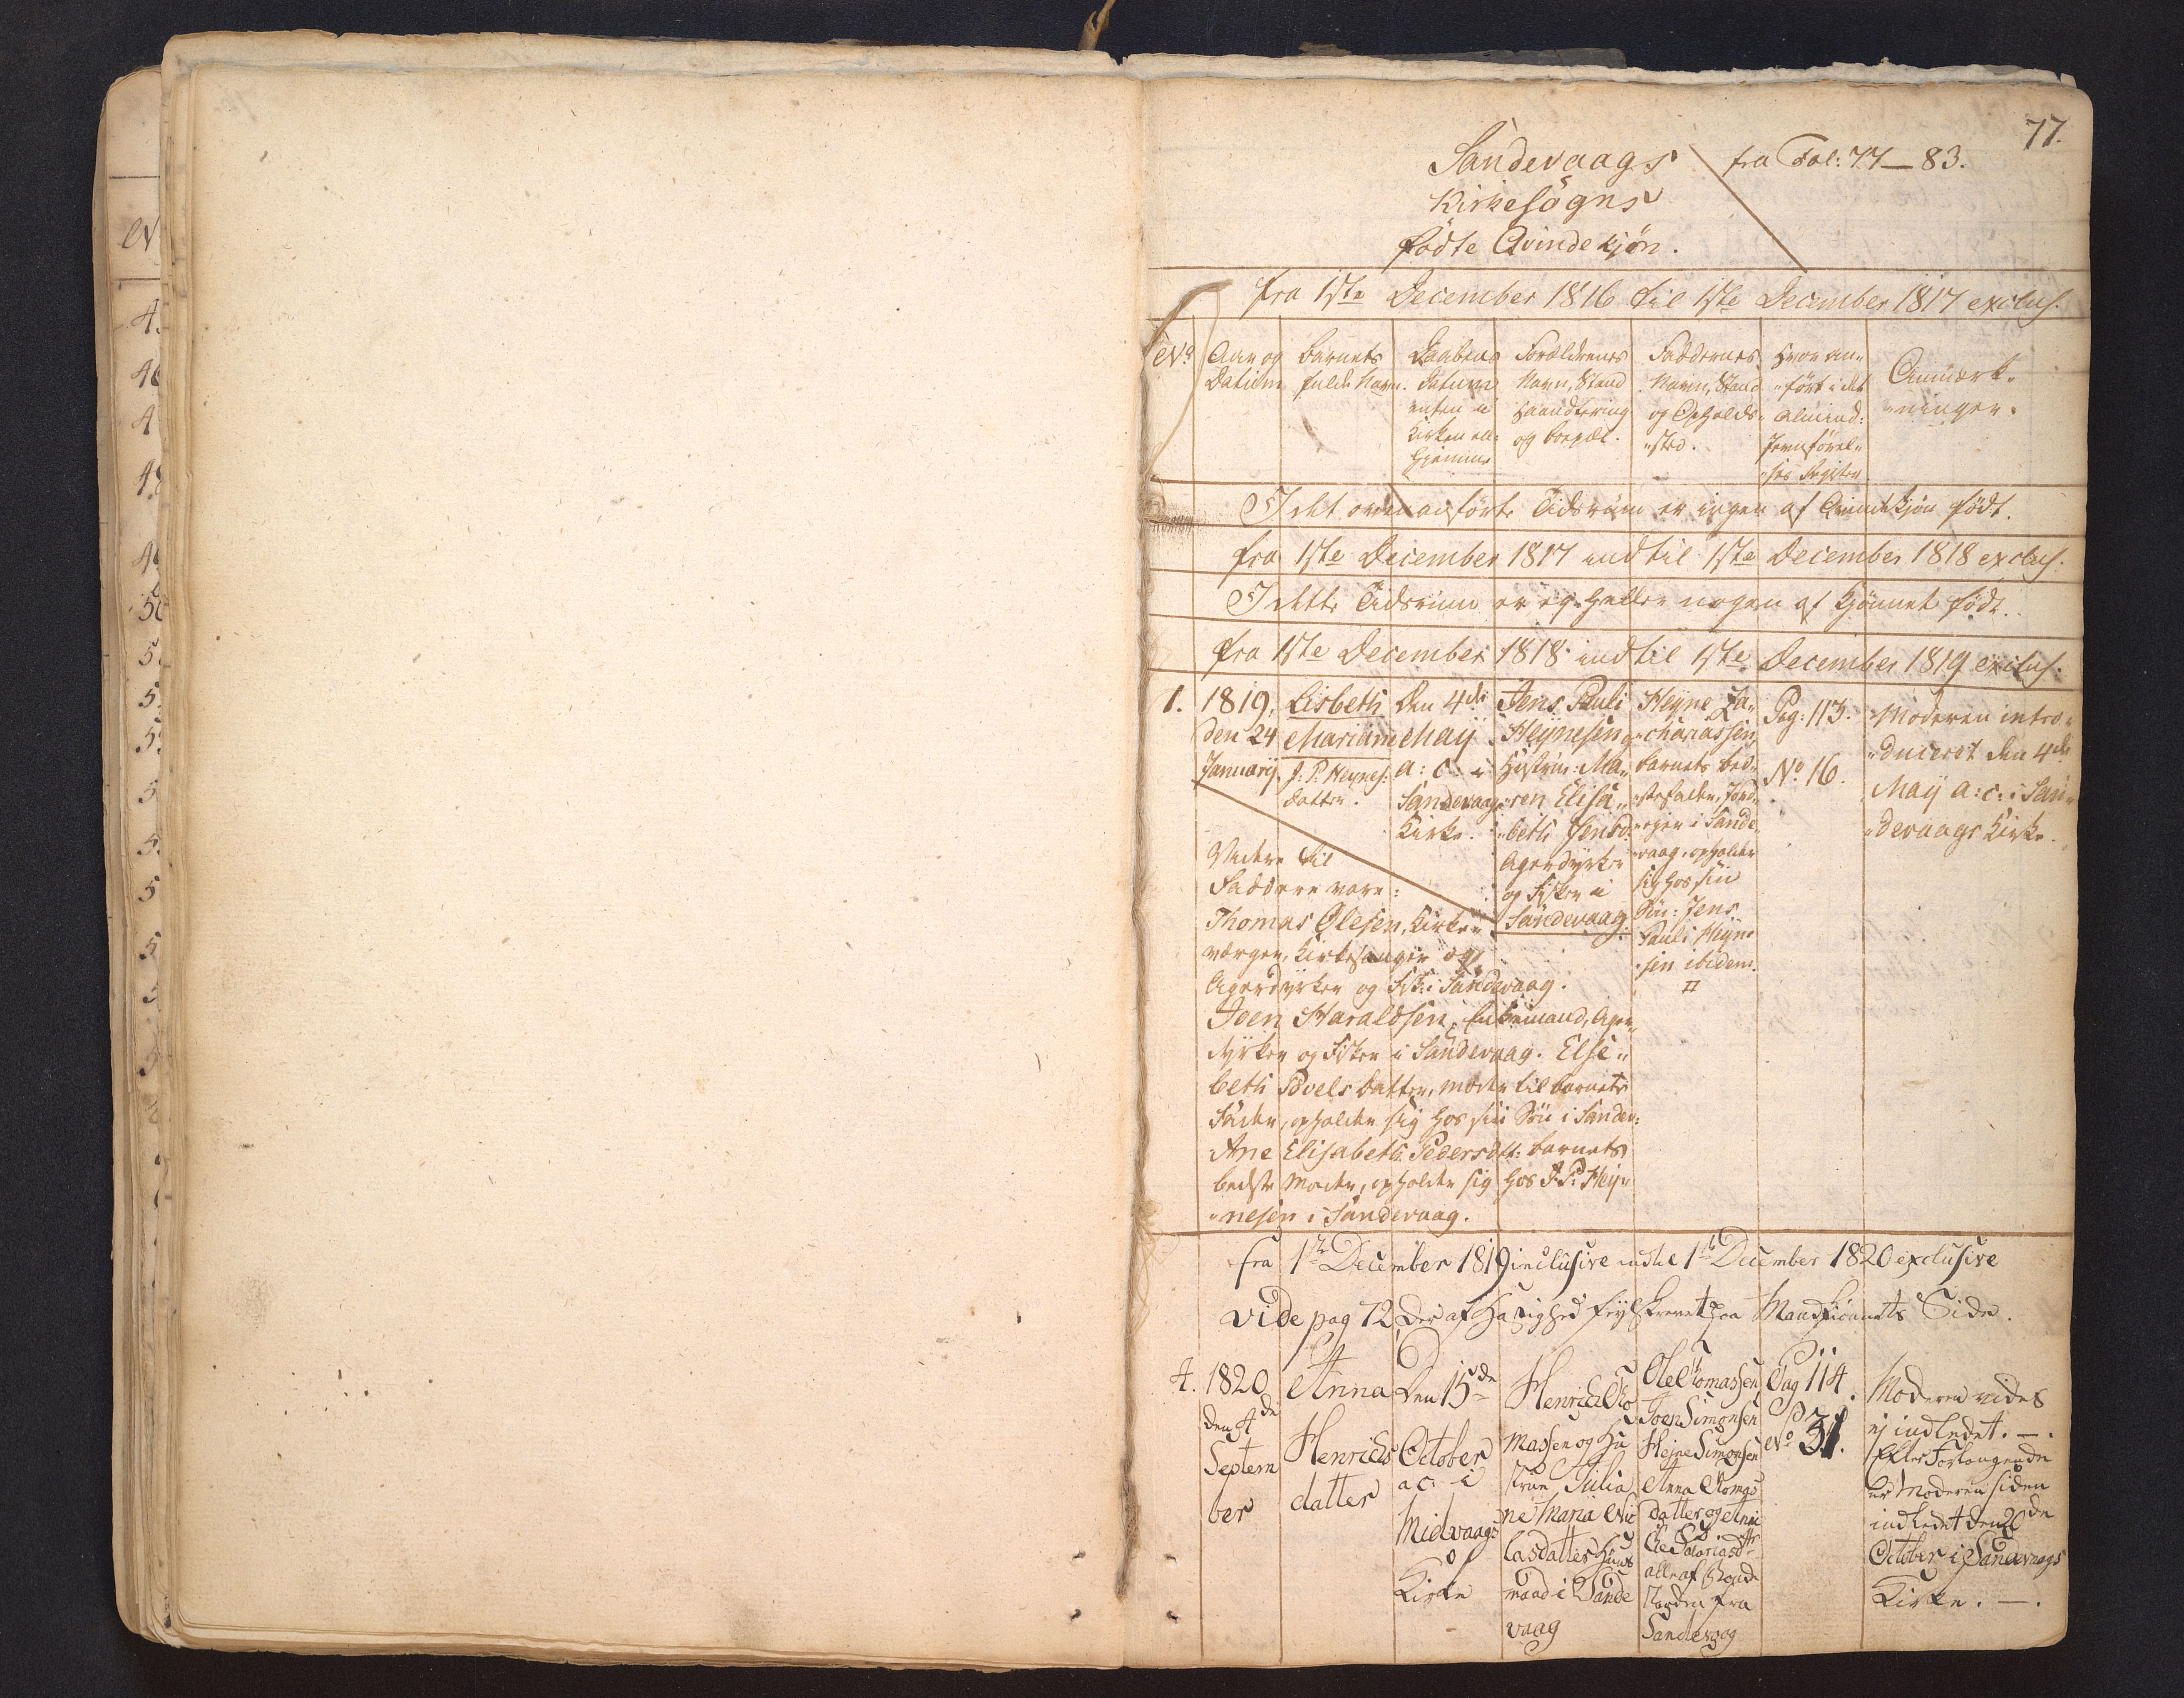 77.
Sandevaags
Kirkesøgns
fødte Qvindekjøn.
fra Fol: 77 — 83.
fra 1ste December 1816 til 1ste December 1817 exclus.
No
Aar og
Datum
Barnets
fulde Navn.
Daabens
Datum
enten i
Kirken en
hjemme
Forældrenes
Navn, Stand
Haandtering
og boepæl.
Faddernes
Navn, Stand
og Opholds-
"sted.
Hvor an-
"ført i det
almind:
Jevnførel-
"ses Register
Anmærk-
"ninger.
I det ovenanførte Tidsrum er ingen af Qvindekjøn født.
fra 1ste December 1817 indtil 1ste December 1818 exclus.
I dette Tidsrum er ej heller nogen af Kjønnet født.
fra 1ste December 1818 indtil 1ste December 1819 exclus.
1.
1819,
den 24
Januarij.
Lisbeth
Mariane
J: P: Heynes.
datter.
Den 4de
Maij
a: c: i
Sandevaags
Kirke.
Jens Pauli
Heynesen og
Hustrue Ma-
"ren Elisa-
"beth Jensd:
Agerdyrker
og Fisker i
Sandevaag.
Heyne Za-
"chariassen
barnets bed-
"stefader,
"egen i Sande-
"vaag, opholder
sig hos sin
Søn: Jens
Pauli Heyne
"sen ibidem.
Pag: 113.
No. 16.
Moderen intro-
"duceret den 4de
Maij a: c: i San-
"devaags Kirke.
Videre til
Faddere vare:
Thomas Olesen, Kirke-
værger, Kirkesanger og
Agerdyrker og Fisk: i Sandevaag.
Joen Haraldsen, Enkemand, Ager-
dyrker og Fisker i Sandevaag. Else-
beth Povels Datter, moder til barnets
Fader, opholder sig hos sin Søn i Sandev:
Ane Elisabeth Pedersdtt: barnets
bedste Moder, opholder sig hos J. P. Hey-
"nesen i Sandevaag.
fra 1te December 1819 inclusive indtil 1te December 1820 exclusive
vide pag 72 der af Hastighed fejlskrevet paa Mandkiønnets Side.
4.
1820
den 4de
Septem
ber
Anna
Henrichs
datter
Den 15de
October
a c: i
Midvaags
Kirke
Henrich Tho
massen og Hu
strue Julia
ne Maria Nic
lasdatter Huus
mand i Sande
vaag
Ole Thomassen
Joen Simonsen
Hejne Simonsen
Anna Thomas
datter og Anne
alle af Bonde
Standen fra
Sandevaag
Pag 114.
No 31.
Moderen vides
ej indledet. —.
Efter Forlangende
er Moderen siden
indledet den 20de
October i Sandevaags
Kirke. —.